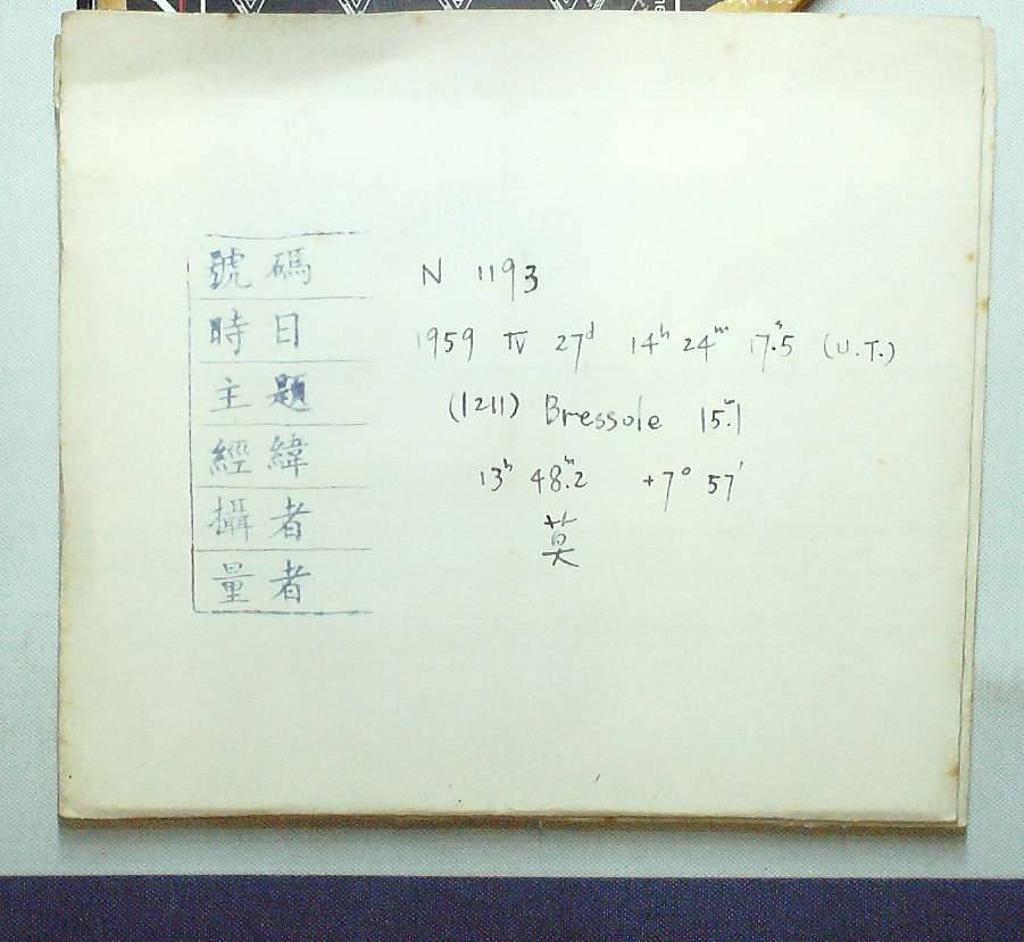 號碼 N 1193
時日 1959 IV 27ᵈ 14ʰ 24ᵐ 17ˢ.5 (U.T.)
主題 (1211) Bressole 15ᵐ.1
經緯 13ʰ 48ᵐ.2 +7° 57′
攝者 莫
量者